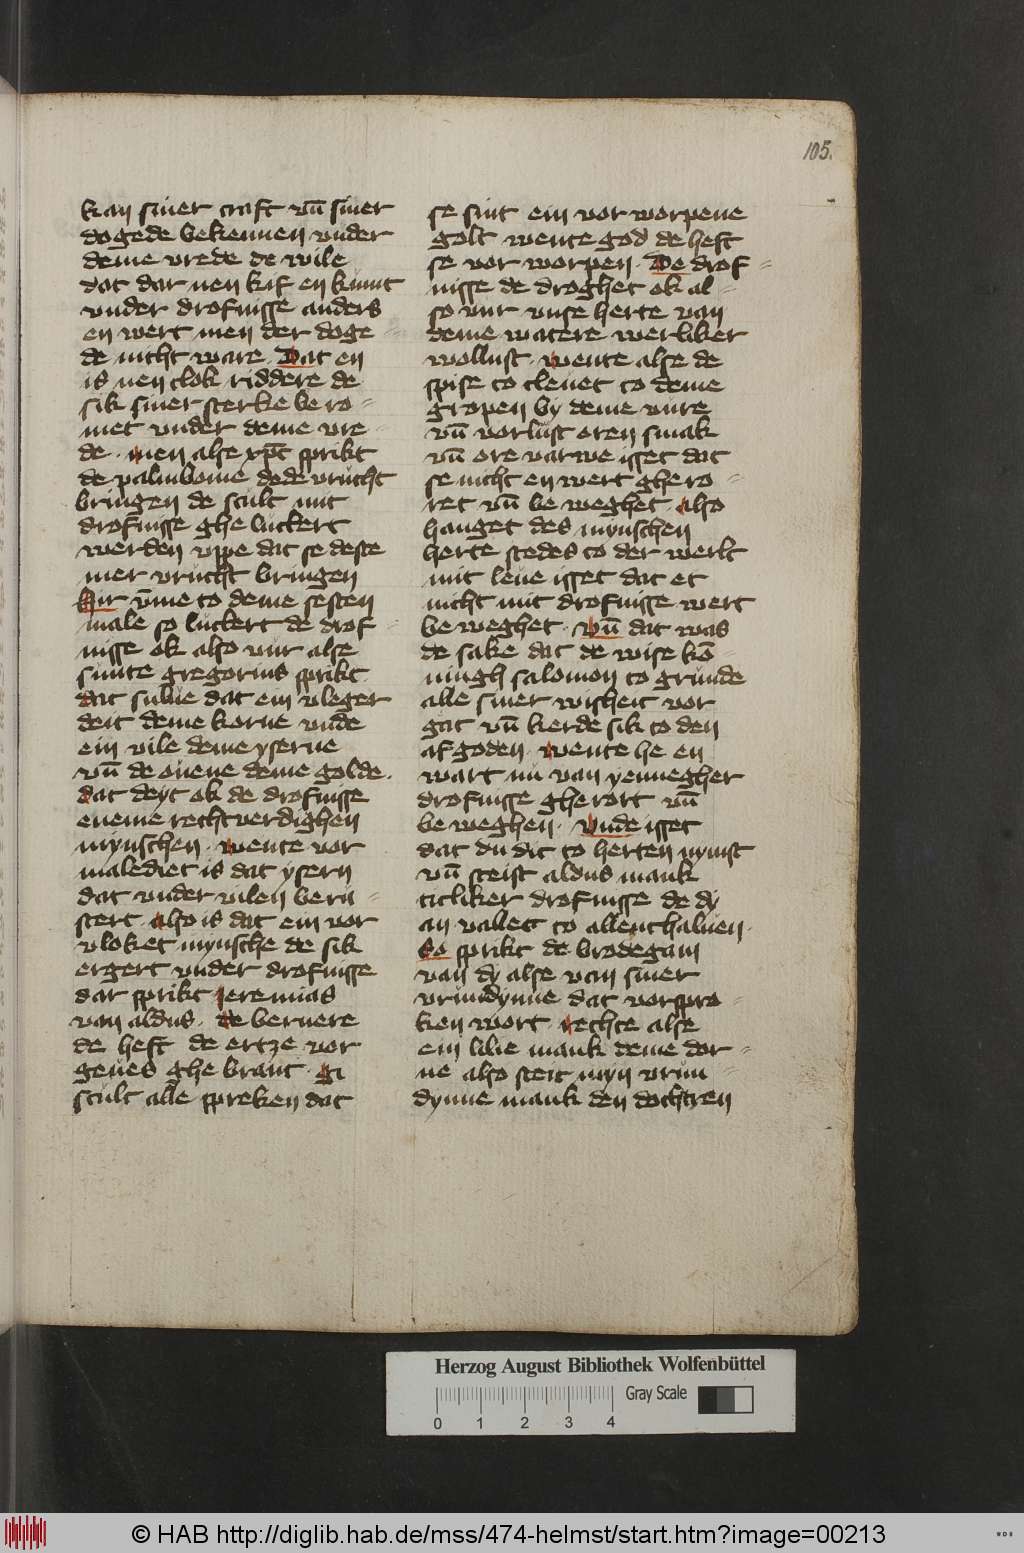 105.
kan siner craft vn̄ siner
dogede bekennen vnder
deme vrede de wile
dat dar nen kif en kumt
vnder drofnisse anders
en wert men der doge
de nicht ware Dat en
is nen clok riddere de
sik siner sterke be ro=
met vnder deme vre
de. men alse xp̄c sprikt
de palmbome dede vrucht
bringen de scult mit
drofnisse ghe luckert
werden vppe dat se deste
mer vrucht bringen
Hir vm̄e to deme sesten
male so luckert de drof=
nisse ok also vur alse
sunte gregorius sprikt
dat sulue dat ein vleger
deit deme korne vnde
ein vile deme yserne
vn̄ de ouene deme golde.
dat deyt ok de drofnisse
eneme rechtverdighen
mynschen. wente vor
malediet is dat ysern
dat vnder vilen beru=
stert. also is dat ein vor
vloket mynsche de sik
ergert vnder drofnisse
dar sprikt Jeremias
van aldus. de bernere
de heft de ertze vor
geues ghe brant. gi
scult alle spreken dat
se sint ein vor worpene
golt wente god de heft
se vor worpen. De drof=
nisse de droghet ok al=
so vur vnse herte van
deme watere werliker
wollust. wente alse de
spise to cleuet to deme
gropen by deme vure
vn̄ vorlust oren smak
vn̄ ore varwe isset dat
se nicht en wert ghe ro=
ret vn̄ be weghet. also
hanget des mynschen
herte stedes to der werlt
mit leue isset dat et
nicht mit drofnisse wert
be weghet. vn̄ dat was
de sake dat de wise kō=
ningh salomon to grunde
alle siner wisheit vor
gat vn̄ kerde sik to den
afgoden. wente he en
wart nu van yennegher
drofnisse gherort vn̄
be weghen. vnde isset
dat du dit to herten nymst
vn̄ steist aldus mank
titliker drofnisse de dy
an vallet to allenthaluen.
So sprikt de brodegam
van dy alse van siner
vrundynne dat vorspro=
ken wort. rechte alse
ein lilie mank deme dor=
ne also steit myn vrun=
dynne mank den dochtren
Herzog August Bibliothek Wolfenbüttel
0 1 2 3 4
Gray Scale
© HAB http://diglib.hab.de/mss/474-helmst/start.htm?image=00213